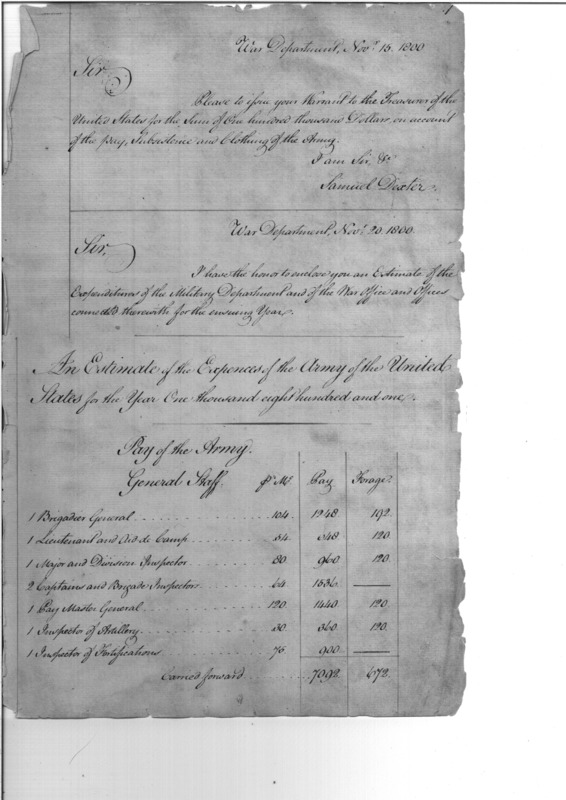 1
War Department, Novr. 15. 1800
Sir
Please to issue your Warrant to the Treasurer of the
United States for the Sum of One hundred thousand Dollars, on account
of the pay, Subsistence and Clothing of the Army.
I am Sir, &c
Samuel Dexter.
War Department, Novr. 20. 1800.
Sir,
I have the honor to enclose you an Estimate of the
Expenditures of the Military Department and of the War Office and Offices
connected therewith for the ensuing Year.
An Estimate of the Expences of the Army of the United
States for the Year One thousand eight hundred and one.
Pay of the Army.
General Staff. pr. Mo. Pay Forage
1 Brigadier General 104. 1248 192.
1 Lieutenant and Aid de Camp 54. 648 120.
1 Major and Division Inspector 80. 960 120.
2 Captains and Brigade Inspectors 64. 1536
1 Pay Master General 120. 1440 120.
1 Inspector of Artillery 30. 360 120.
1 Inspector of Fortifications 75. 900
carried forward 7092. 672.